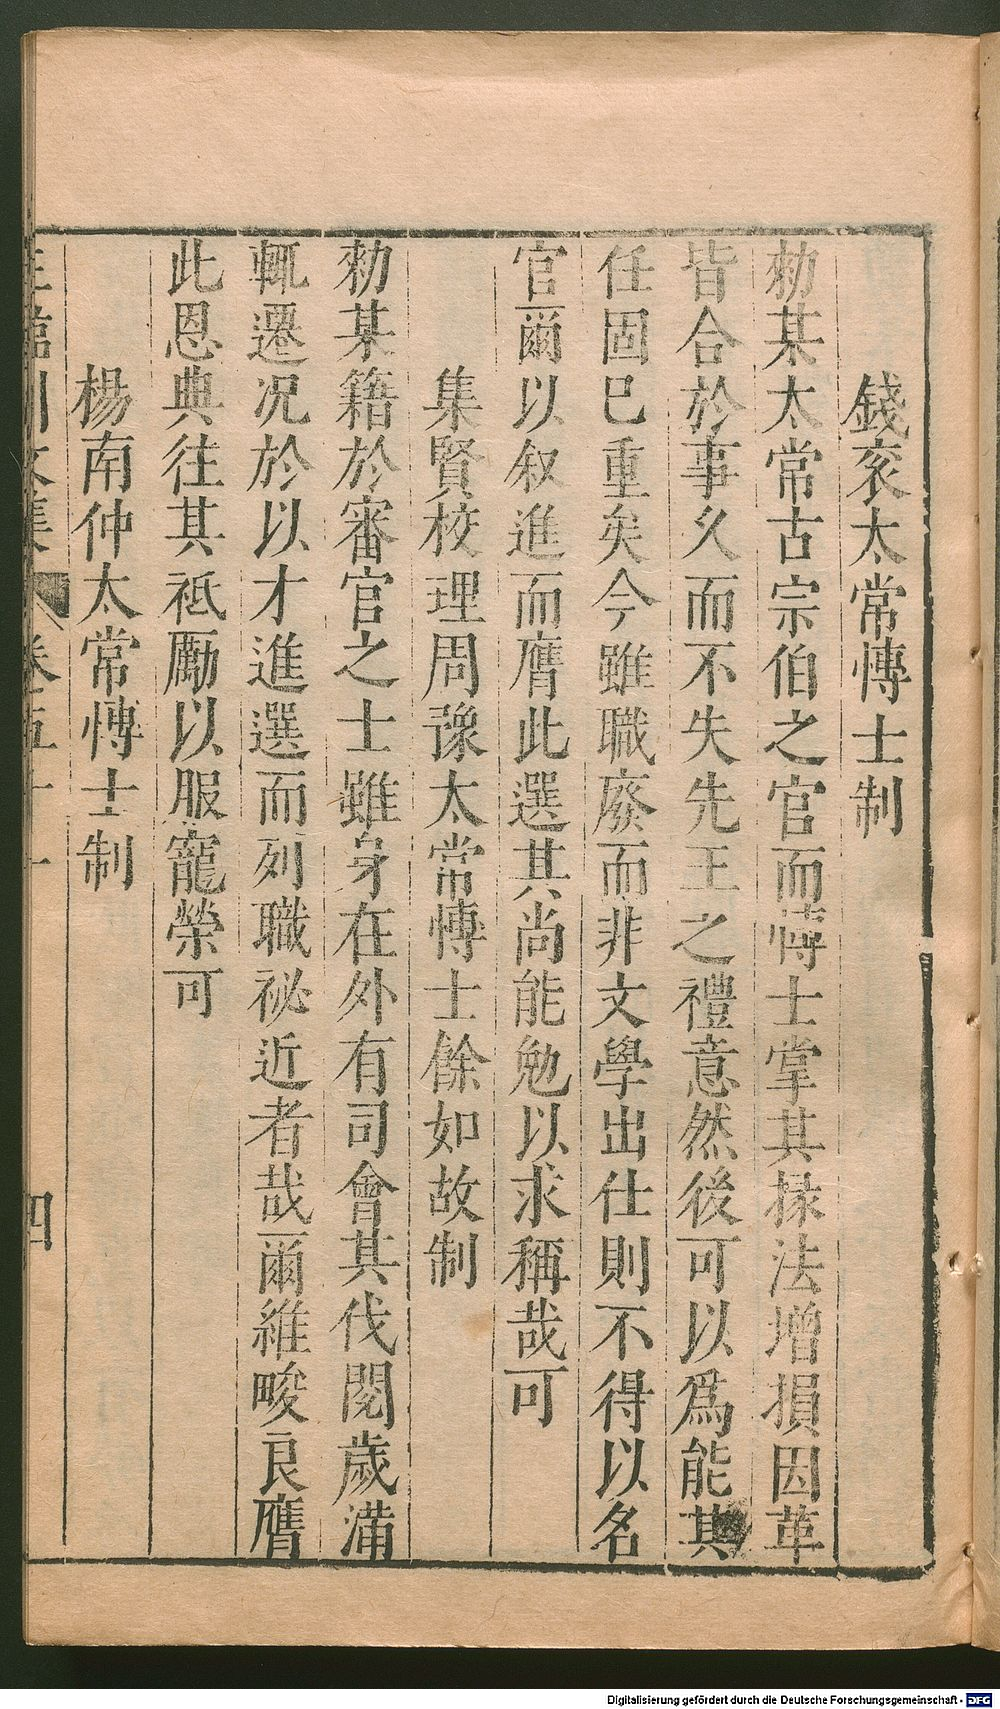 錢袞太常博士制
勑某太常古宗伯之官而博士掌其掾法增損因革
皆合於事久而不失先王之禮意然後可以爲能其
任固已重矣今雖職廢而非文學出仕則不得以名
官爾以叙進而膺此選其尚能勉以求稱哉可
集賢校理周豫太常博士餘如故制
勑某籍於審官之士雖身在外有司會其伐閱歲滿
輒遷况於以才進選而列職祕近者哉爾維畯良膺
此恩典往其祗勵以服寵榮可
楊南仲太常博士制
王臨川文集 卷五十一 四
Digitalisierung gefördert durch die Deutsche Forschungsgemeinschaft - DFG